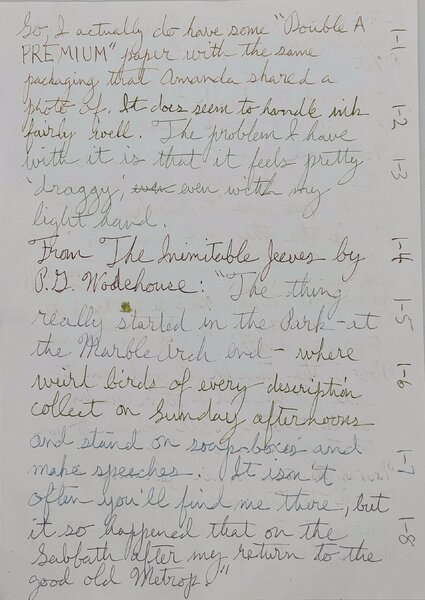 So, I actually do have some "Double A
PREMIUM" paper with the same
packaging that Amanda shared a
photo of. It does seem to handle ink
fairly well. The problem I have
with it is that it feels pretty
'draggy,' even even with my
light hand.
From The Inimitable Jeeves by
P.G. Wodehouse: "The thing
really started in the Park – at
the Marble Arch end – where
weird birds of every description
collect on Sunday afternoons
and stand on soap-boxes and
make speeches. It isn't
often you'll find me there, but
it so happened that on the
Sabbath after my return to the
good old Metrop."
1-1
1-2
1-3
1-4
1-5
1-6
1-7
1-8